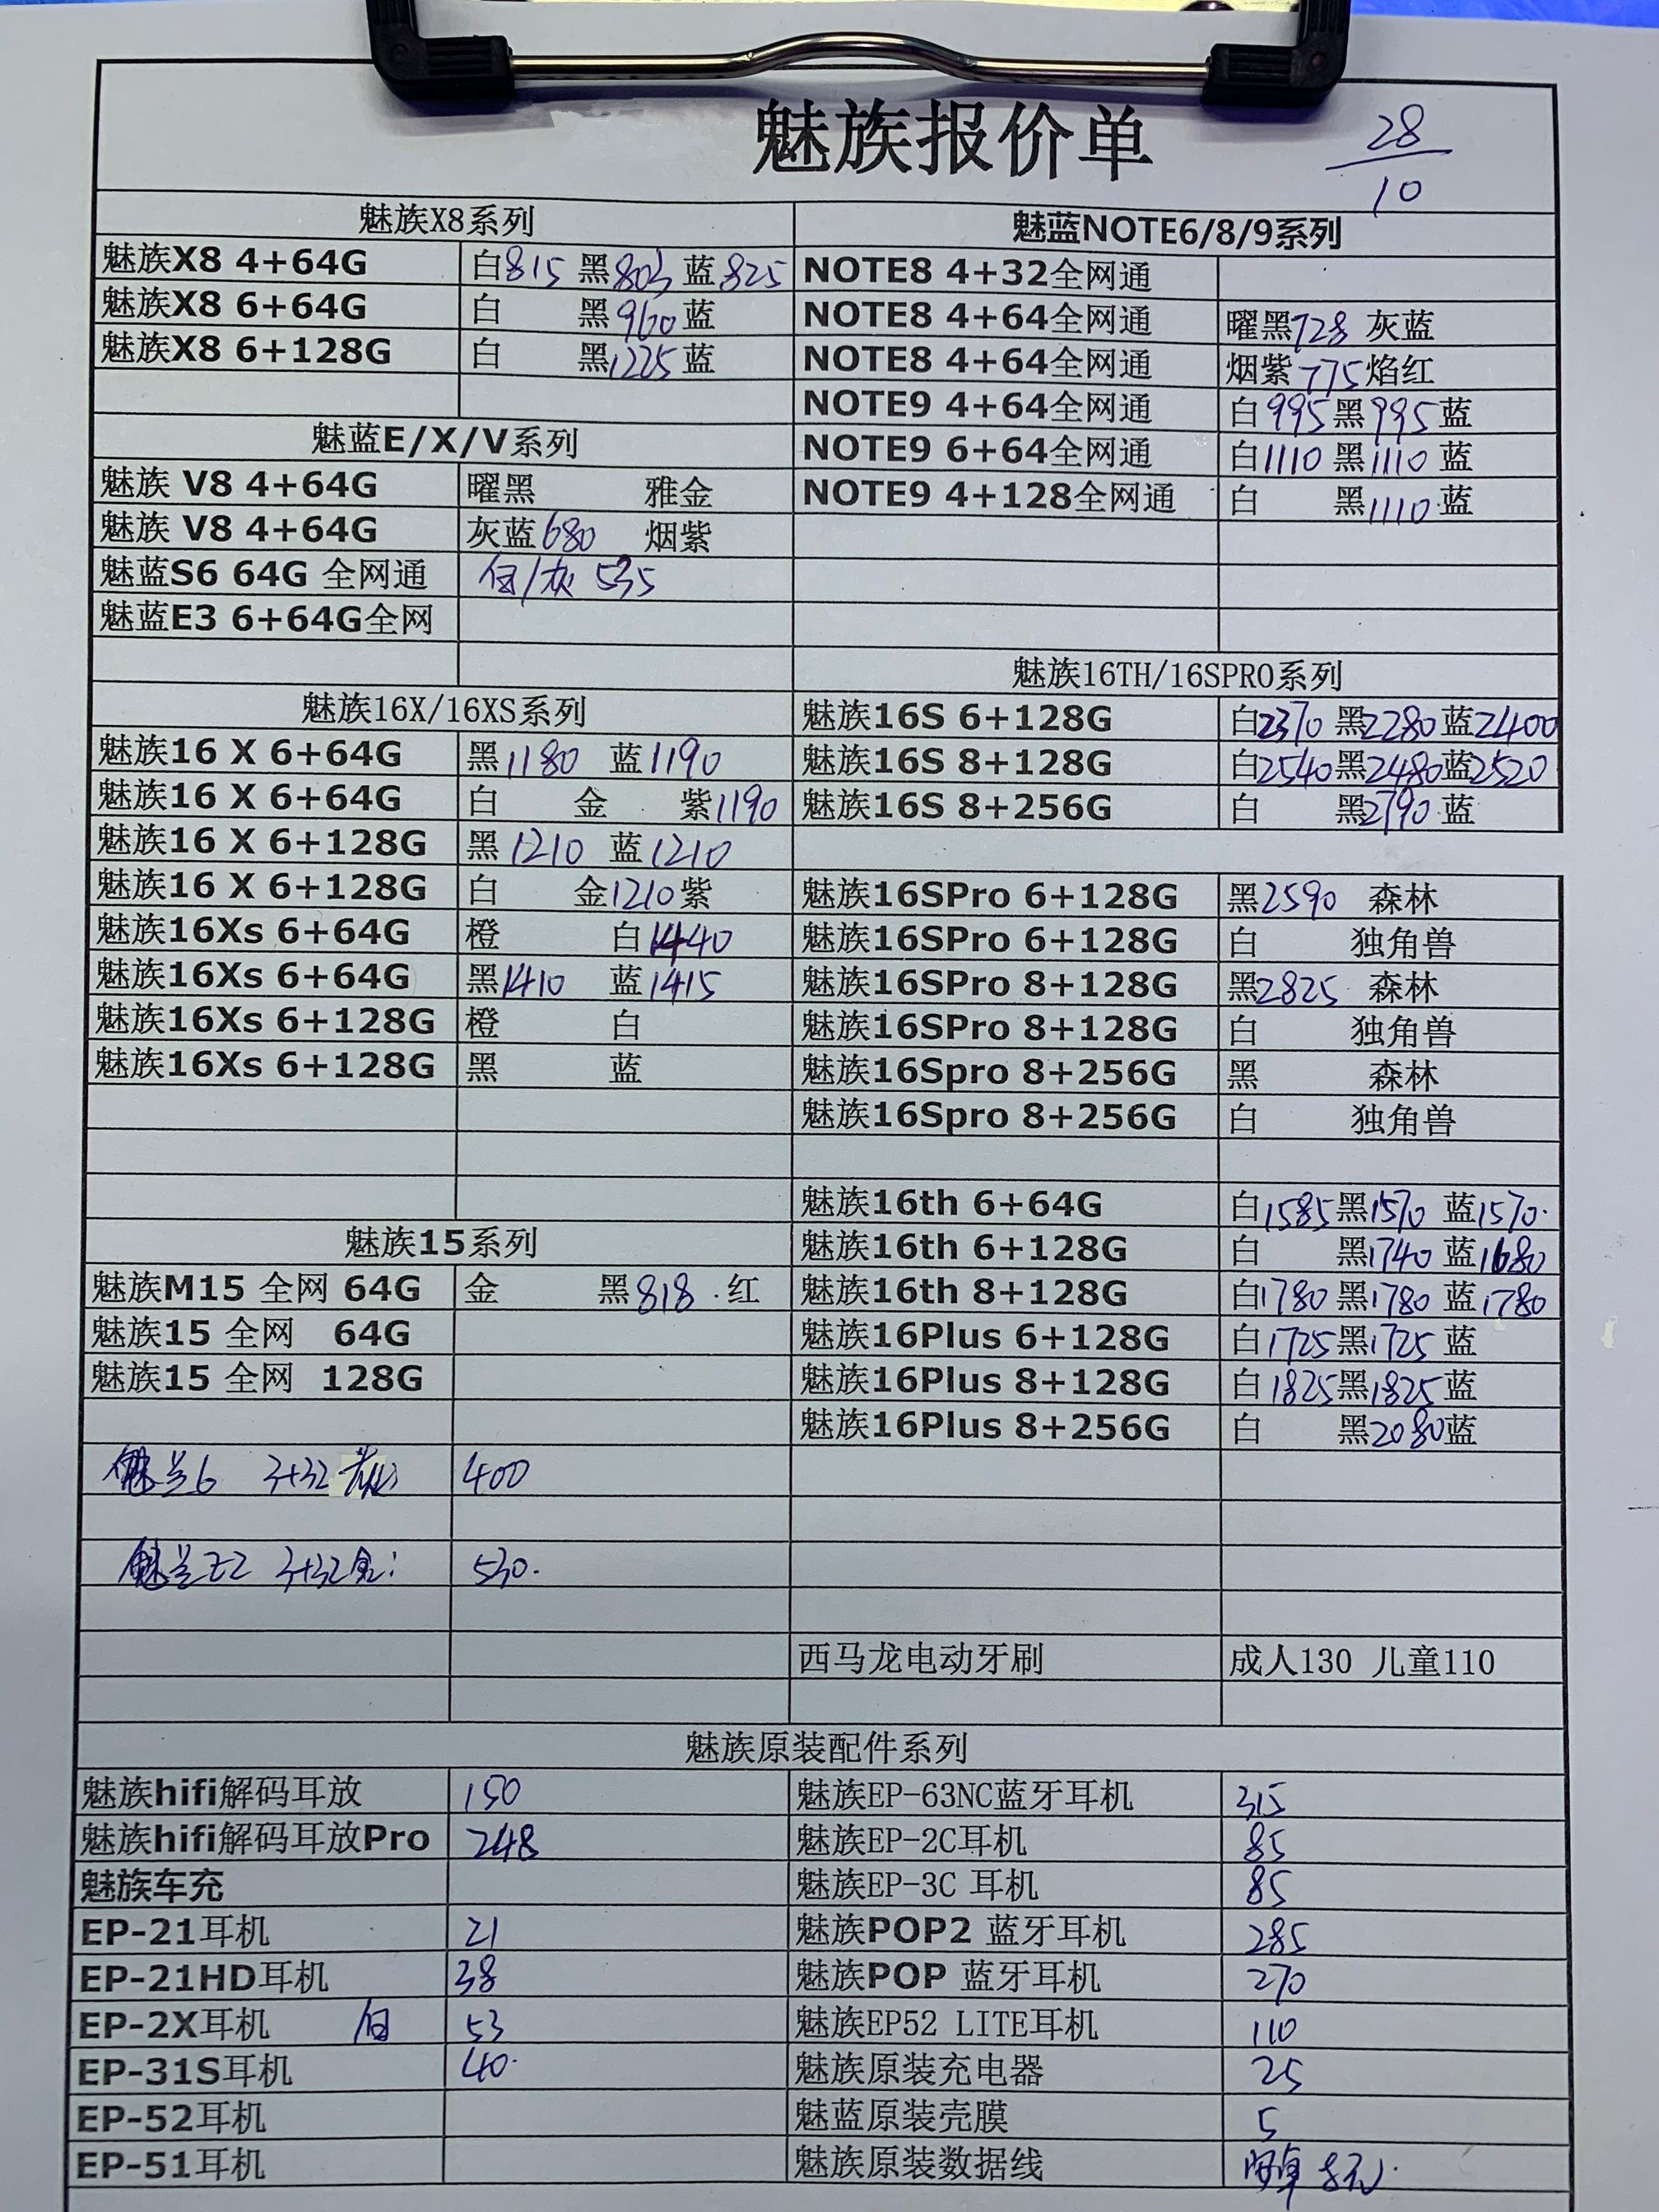 魅族报价单
28/10
魅族X8系列
魅族X8 4+64G 白815 黑803 蓝825
魅族X8 6+64G 白 黑960 蓝
魅族X8 6+128G 白 黑1225 蓝
魅蓝E/X/V系列
魅族 V8 4+64G 曜黑 雅金
魅族 V8 4+64G 灰蓝680 烟紫
魅蓝S6 64G 全网通 白/灰 535
魅蓝E3 6+64G全网
魅族16X/16XS系列
魅族16 X 6+64G 黑1180 蓝1190
魅族16 X 6+64G 白 金 紫1190
魅族16 X 6+128G 黑1210 蓝1210
魅族16 X 6+128G 白 金1210 紫
魅族16Xs 6+64G 橙 白1440
魅族16Xs 6+64G 黑1410 蓝1415
魅族16Xs 6+128G 橙 白
魅族16Xs 6+128G 黑 蓝
魅族15系列
魅族M15 全网 64G 金 黑818 红
魅族15 全网 64G
魅族15 全网 128G
魅兰6 3+32 400
魅兰E2 3+32 530
魅蓝NOTE6/8/9系列
NOTE8 4+32全网通
NOTE8 4+64全网通 曜黑728 灰蓝
NOTE8 4+64全网通 烟紫775 焰红
NOTE9 4+64全网通 白995 黑995 蓝
NOTE9 6+64全网通 白1110 黑1110 蓝
NOTE9 4+128全网通 白 黑1110 蓝
魅族16TH/16SPRO系列
魅族16S 6+128G 白2370 黑2280 蓝2400
魅族16S 8+128G 白2540 黑2480 蓝2520
魅族16S 8+256G 白 黑2790 蓝
魅族16SPro 6+128G 黑2590 森林
魅族16SPro 6+128G 白 独角兽
魅族16SPro 8+128G 黑2825 森林
魅族16SPro 8+128G 白 独角兽
魅族16Spro 8+256G 黑 森林
魅族16Spro 8+256G 白 独角兽
魅族16th 6+64G 白1585 黑1570 蓝1570
魅族16th 6+128G 白 黑1740 蓝1680
魅族16th 8+128G 白1780 黑1780 蓝1780
魅族16Plus 6+128G 白1725 黑1725 蓝
魅族16Plus 8+128G 白1825 黑1825 蓝
魅族16Plus 8+256G 白 黑2080 蓝
西马龙电动牙刷 成人130 儿童110
魅族原装配件系列
魅族hifi解码耳放 150
魅族hifi解码耳放Pro 248
魅族车充
EP-21耳机 21
EP-21HD耳机 38
EP-2X耳机 白 53
EP-31S耳机 40
EP-52耳机
EP-51耳机
魅族EP-63NC蓝牙耳机 315
魅族EP-2C耳机 85
魅族EP-3C 耳机 85
魅族POP2 蓝牙耳机 285
魅族POP 蓝牙耳机 270
魅族EP52 LITE耳机 110
魅族原装充电器 25
魅蓝原装壳膜 5
魅族原装数据线 安卓 8元